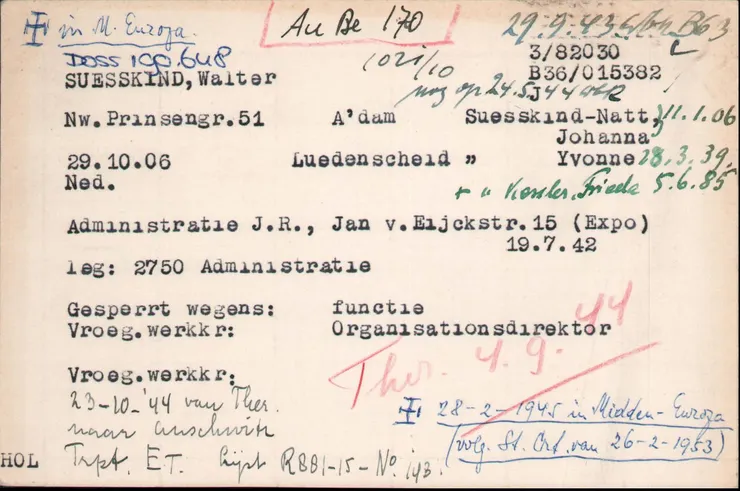 ✝ in M. Europa. AuBe 170 29.9.43 B63
Doss 100.648 1021/10 3/82030
SUESSKIND, Walter B36/015382
nog op 24.5.44 J
Nw. Prinsengr.51 A'dam Suesskind-Natt, 11.1.06
Johanna
29.10.06 Luedenscheid " Yvonne 28.3.39.
Ned.
+ " Kessler, Frieda 5.6.85
Administratie J.R., Jan v.Eijckstr.15 (Expo)
19.7.42
leg: 2750 Administratie
Gesperrt wegens: functie
Vroeg.werkkr: Organisationsdirektor
Ther. 4.9.44
Vroeg.werkkr:
23-10-'44 van Ther.
naar Auschwitz
✝ 28-2-1945 in Midden-Europa
(volg. St. Crt. van 26-2-1953)
HOL Trpt. ET. Lijst R881-15-No. 143.